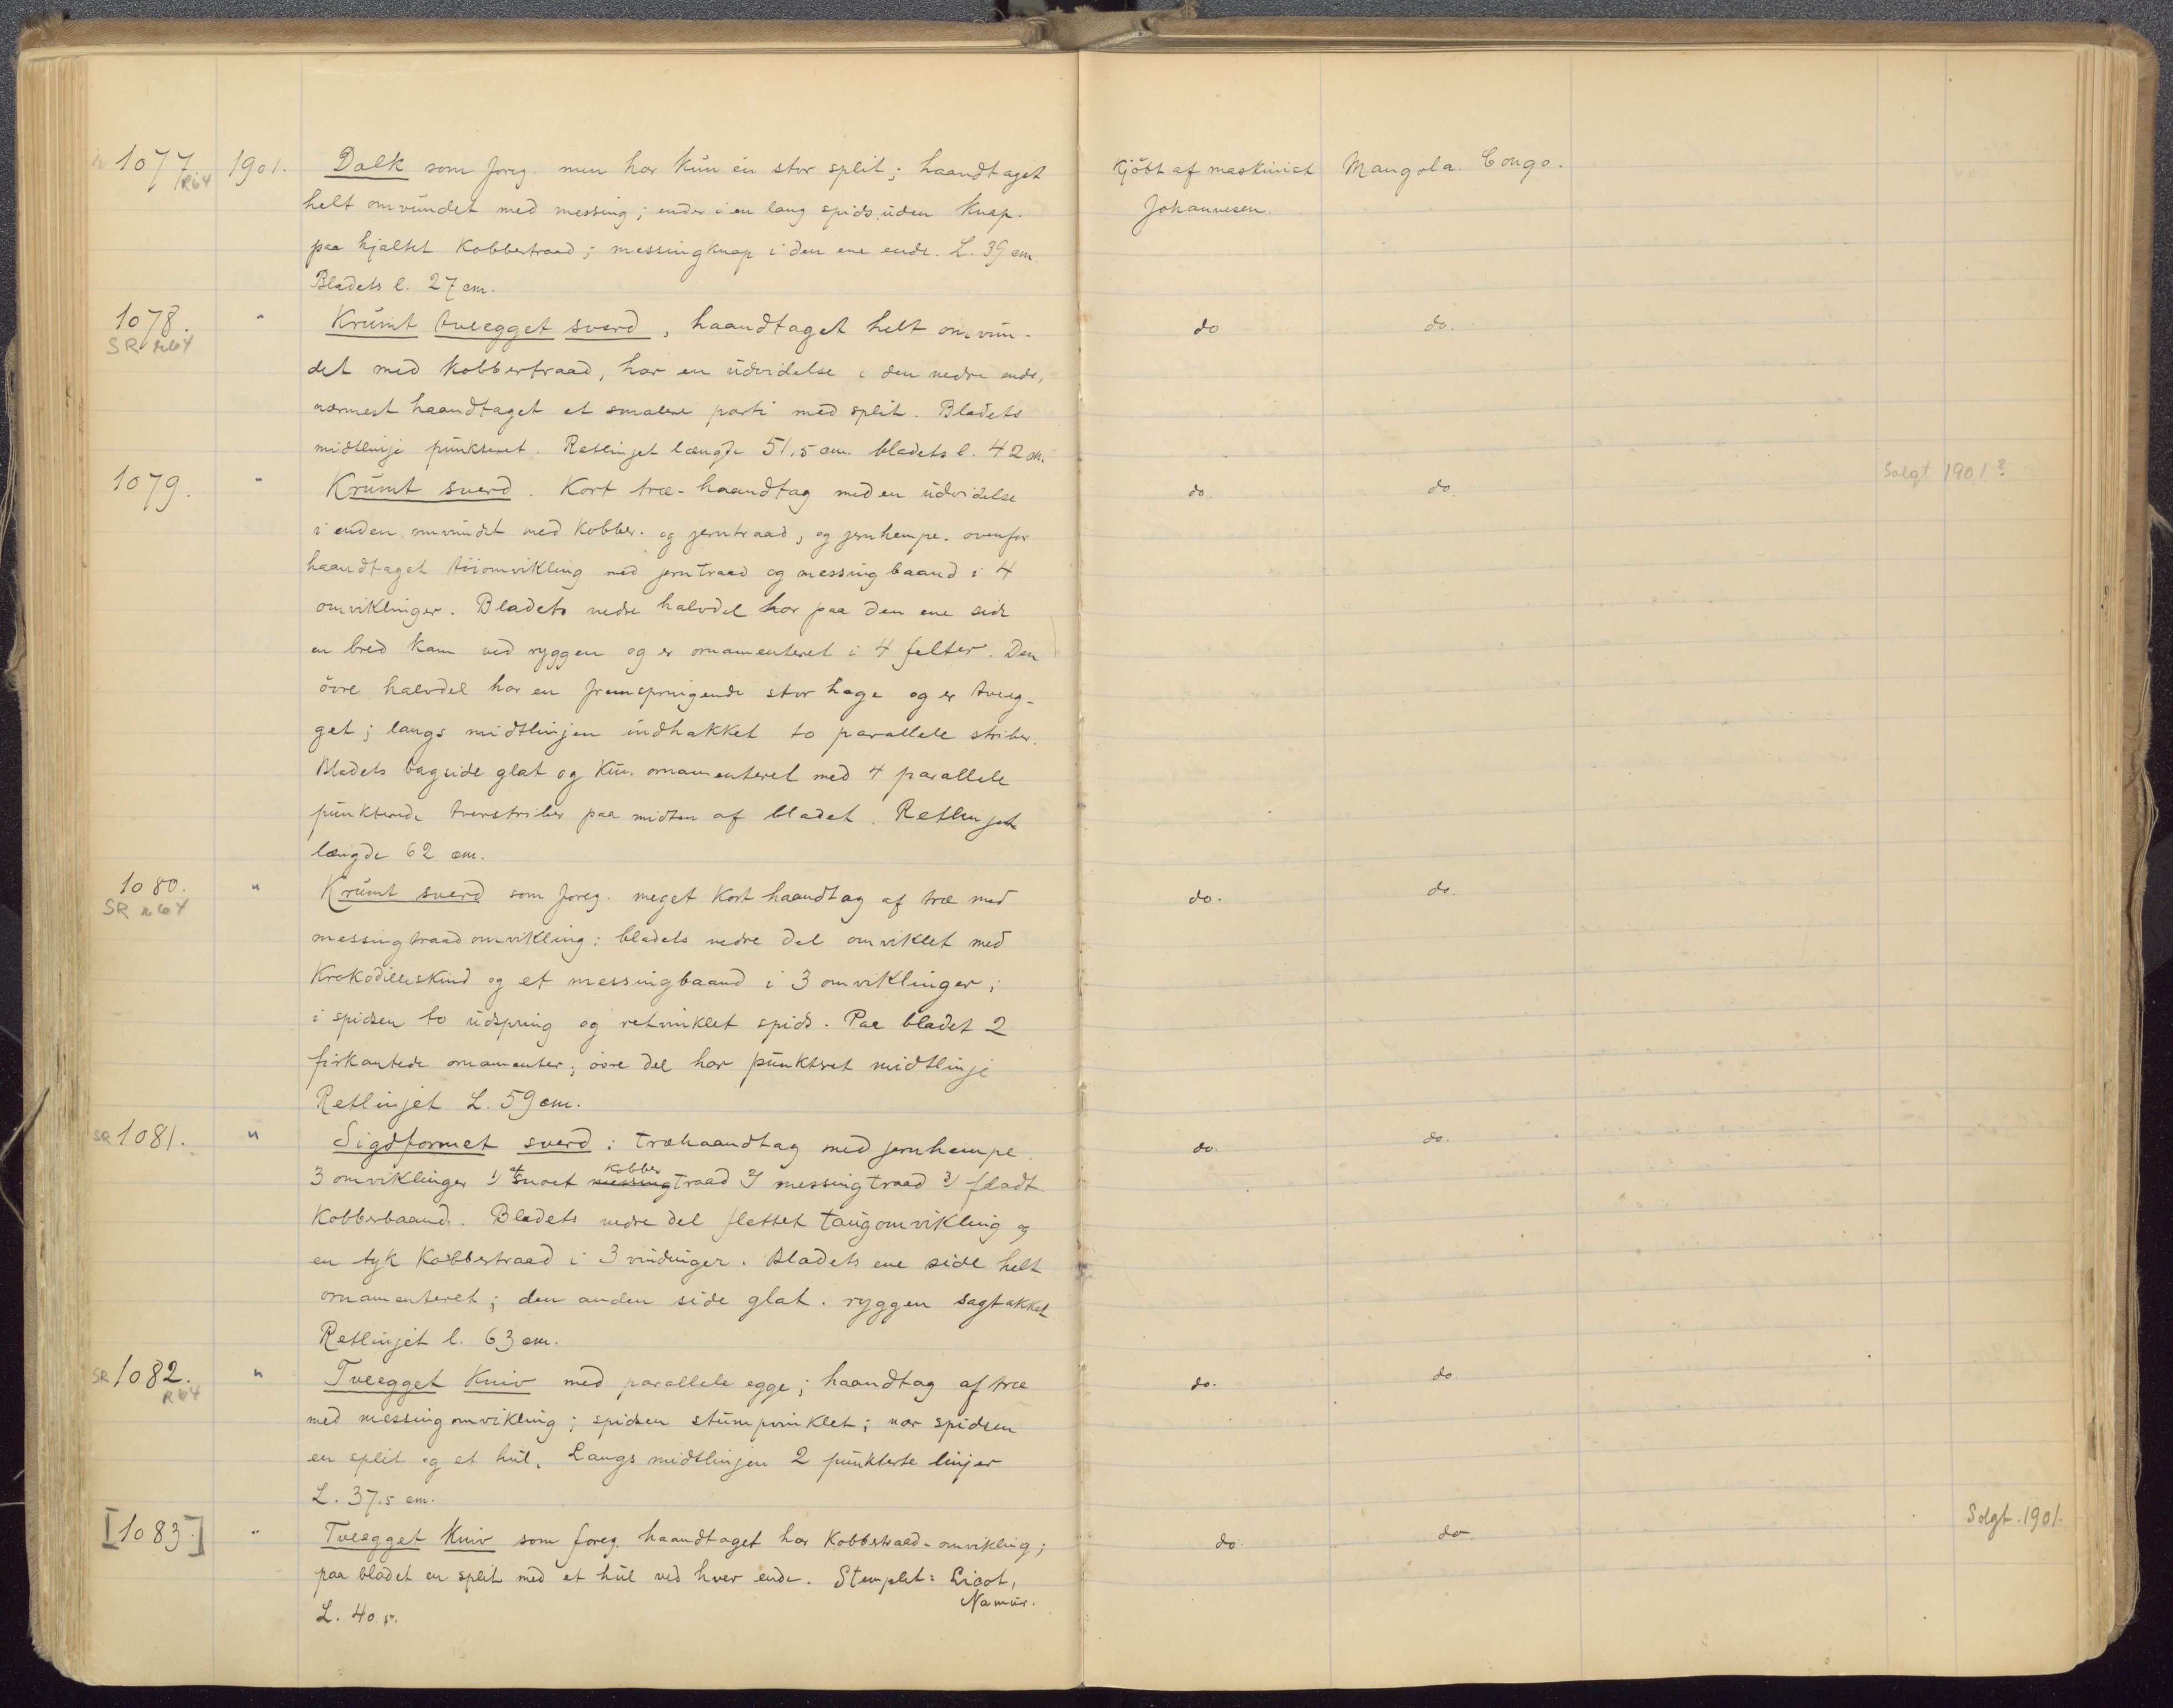 1077. 1901. Dolk som foreg. men har kun én stor split; haandtaget Kjöbt af maskinist Mangola. Congo.
R64
helt omvundet med messing; ender i en lang spids uden knap. Johannesen.
paa hjaltet kobbertraad; messingknap i den ene ende. L. 39 cm.
Bladets l. 27 cm.
1078. " Krumt tveegget sverd, haandtaget helt omvun- do do.
SR R64
det med kobbertraad, har en udvidelse i den nedre ende,
nærmest haandtaget et smalere parti med split. Bladets
midtlinje punkteret. Retlinjet længde 51,5 cm. bladets l. 42 cm.
1079. " Krumt sverd. Kort træ-haandtag med en udvidelse do. do. Solgt 1901?
i enden, omvundet med kobber- og jerntraad, og jernhempe. ovenfor
haandtaget töiomvikling med jerntraad og messingbaand i 4
omviklinger. Bladets nedre halvdel har paa den ene side
en bred kam ved ryggen og er ornamenteret i 4 felter. Den
övre halvdel har en fremspringende stor hage og er tveeg-
get; langs midtlinjen indhakket to parallele striber.
Bladets bagside glat og kun ornamenteret med 4 parallele
punkterede tverstriber paa midten af bladet. Retlinjet
længde 62 cm.
1080. " Krumt sverd som foreg. meget kort haandtag af træ med do. do.
SR R64
messingtraadomvikling; bladets nedre del omviklet med
Krokodilleskind og et messingbaand i 3 omviklinger;
i spidsen to udspring og retvinklet spids. Paa bladet 2
firkantede ornamenter; övre del har punktret midtlinje
Retlinjet L. 59 cm.
SR 1081. " Sigdformet sverd: træhaandtag med jernhempe. do. do.
3 omviklinger 1) af snoet messing kobber traad 2) messingtraad 3) fladt
kobberbaand. Bladets nedre del flettet taugomvikling og
en tyk kobbertraad i 3 vindinger. Bladets ene side helt
ornamenteret; den anden side glat. ryggen sagtakket
Retlinjet l. 63 cm.
SR 1082. " Tveegget kniv med parallele egge; haandtag af træ do. do.
R64
med messingomvikling; spidsen stumpvinklet; nær spidsen
en split og et hul. Langs midtlinjen 2 punkterte linjer
L. 37.5 cm.
[1083.] " Tveegget kniv som foreg. haandtaget har kobbertraad-omvikling; do do. Solgt. 1901.
paa bladet en split med et hul ved hver ende. Stemplet: Licot,
Namur.
L. 40.5.